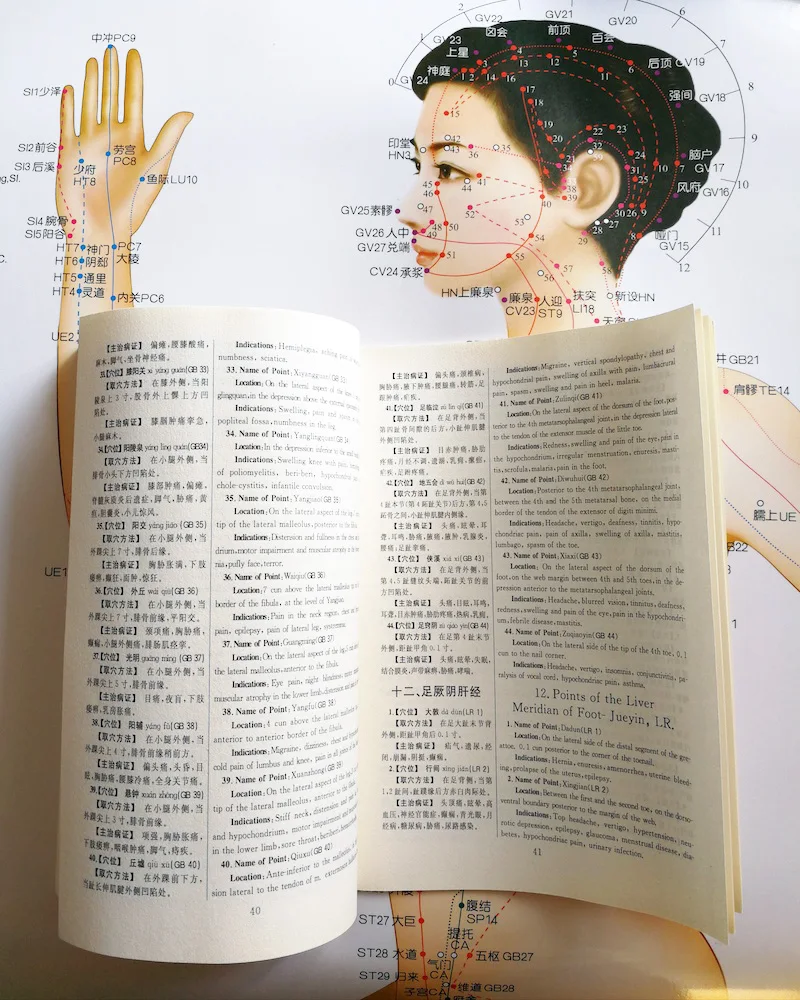 中冲PC9
SI1少泽
SI2前谷
SI3后溪
少府
HT8
劳宫
PC8
鱼际LU10
ng,SI.
SI4腕骨
SI5阳谷
HT7神门
HT6阴郄
HT5通里
HT4灵道
PC7
大陵
内关PC6
UE2
UE1
2
GV22
囟会
GV21
前顶
GV20
百会
6
GV23
上星
神庭
GV24
0
后顶 GV19
7
强间
GV18
8
9
脑户
GV17
风府
GV16
10
哑门
GV15
11
12
印堂
HN3
GV25素髎
GV26人中
GV27兑端
CV24承浆
HN上廉泉
廉泉
CV23
人迎
ST9
扶突
LI18
新设HN
井GB21
肩髎TE14
臑上UE
1
【主治病证】 偏瘫,腰膝酸痛,
麻木,脚气,坐骨神经痛。
33.【穴位】 膝阳关 xī yáng guān(GB 33)
【取穴方法】 在膝外侧,当阳
陵泉上3寸,股骨外上髁上方凹
陷处。
【主治病证】 膝腘肿痛挛急,
小腿麻木。
34.【穴位】阳陵泉 yáng líng quán(GB34)
【取穴方法】 在小腿外侧,当
腓骨小头下方凹陷处。
【主治病证】 膝部肿痛,偏瘫,
脊髓灰质炎后遗症,脚气,胁痛,黄
疸,胆囊炎,小儿惊风。
35.【穴位】 阳交 yáng jiāo (GB 35)
【取穴方法】 在小腿外侧,当
外踝尖上7寸,腓骨后缘。
【主治病证】 胸胁胀满,下肢
痿痹,癫狂,面肿,惊狂。
36.【穴位】 外丘 wài qiū(GB 36)
【取穴方法】 在小腿外侧,当
外踝尖上7寸,腓骨前缘,平阳交。
【主治病证】 颈项痛,胸胁痛,
癫痫,小腿外侧痛,腓肠肌痉挛。
37.【穴位】 光明 guāng míng (GB 37)
【取穴方法】 在小腿外侧,当
外踝尖上5寸,腓骨前缘。
【主治病证】 目痛,夜盲,下肢
痿痹,乳房胀痛。
38.【穴位】 阳辅 yáng fǔ(GB 38)
【取穴方法】 在小腿外侧,当
外踝尖上4寸,腓骨前缘稍前方。
【主治病证】 偏头痛,头昏,目
眩,胸胁痛,腰膝冷痛,全身关节痛。
39.【穴位】 悬钟 xuán zhōng(GB 39)
【取穴方法】 在小腿外侧,当
外踝尖上3寸,腓骨前缘。
【主治病证】 项强,胸胁胀痛,
下肢痿痹,咽喉肿痛,脚气,痔疾。
40.【穴位】 丘墟 qiū xū(GB 40)
【取穴方法】 在外踝前下方,
当趾长伸肌腱外侧凹陷处。
Indications: Hemiplegia,
numbness, sciatica.
33. Name of Point: Xiyangguan(GB 33)
Location: On the lateral aspect of the
glingquan,in the depression above the external
Indications: Swelling, pain and
popliteal fossa,numbness in the leg.
34. Name of Point: Yanglingquan(GB 34)
Location: In the depression inferior to the
Indications: Swelling knee with pain,
of poliomyelitis, beri-beri, hypochondriac
chole-cystitis, infantile convulsion.
35. Name of Point: Yangjiao(GB 35)
Location: On the lateral aspect of the leg,
tip of the lateral malleolus,posterior to the fibula.
Indications: Distension and fullness in the
drium,motor impairment and muscular atrophy
nia,puffy face,terror.
36. Name of Point: Waiqiu(GB 36)
Location: 7 cun above the lateral malleolus
border of the fibula, at the level of Yangjiao.
Indications: Pain in the neck region, chest and
pain, epilepsy, pain of lateral leg, systremma.
37. Name of Point: Guangming(GB 37)
Location: On the lateral aspect of the leg,5 cun
the lateral malleolus,anterior to the fibula.
Indications: Eye pain, night blindness,
muscular atrophy in the lower limb,distension and pain
38. Name of Point: Yangfu(GB 38)
Location: 4 cun above the lateral malleolus
anterior to anterior border of the fibula.
Indications: Migraine, dizziness, chest and
cold pain of lumbus and knee, pain in all joints of the
39. Name of Point: Xuanzhong(GB 39)
Location: On the lateral aspect of the leg,3
tip of the lateral malleolus, anterior to the
Indications: Stiff neck, distension, and pain
and hypochondrium, motor impairment and
in the lower limb, sore throat, beriberi,
40. Name of Point: Qiuxu(GB 40)
Location: Ante-inferior to the malleolus, in
sion lateral to the tendon of m. extensor
40
【主治病证】 偏头痛,颈椎病,
胸胁痛,腋下肿痛,腰腿痛,转筋,足
跟肿痛,疟疾。
41.【穴位】 足临泣 zú lín qì(GB 41)
【取穴方法】 在足背外侧,当
第四趾骨间隙的后方,小趾伸肌腱
外侧凹陷处。
【主治病证】 目赤肿痛,胁肋
疼痛,月经不调,遗溺,乳痈,瘰疬,
疟疾,足跗疼痛。
42.【穴位】 地五会 dì wǔ huì(GB 42)
【取穴方法】 在足背外侧,当第
4趾本节(第4跖趾关节)后方,第4、5
跖骨之间,小趾伸肌腱内侧缘。
【主治病证】 头痛,眩晕,耳
聋,耳鸣,胁痛,腋痛,腋肿,乳腺炎,
腰痛,足趾挛痛。
43.【穴位】 侠溪 xiá xī(GB 43)
【取穴方法】 在足背外侧,当
第4,5趾缝纹头端,跖趾关节的前
方凹陷处。
【主治病证】 头痛,目眩,耳鸣,
耳聋,目赤肿痛,胁肋疼痛,热病,乳痈。
44.【穴位】足窍阴 zú qiào yīn(GB 44)
【取穴方法】 在足第4趾末节
外侧,距趾甲角0.1寸。
【主治病证】 头痛,眩晕,失眠,
结合膜炎,声带麻痹,胁痛,哮喘。
十二、足厥阴肝经
1.【穴位】 大敦 dà dūn(LR 1)
【取穴方法】 在足大趾末节背
外侧,距趾甲角后0.1寸。
【主治病证】 疝气,遗尿,经
闭,崩漏,阴挺,癫痫。
2.【穴位】 行间 xíng jiān(LR 2)
【取穴方法】 在足背侧,当第
1,2趾间,趾蹼缘后方赤白肉际处。
【主治病证】 头顶痛,眩晕,高
血压,神经官能症,癫痫,青光眼,月
经病,糖尿病,胁痛,尿路感染。
Indications: Migraine, vertical spondylopathy, chest and
hypochondrial pain, swelling of axilla with pain, lumbacrural
pain, spasm, swelling and pain in heel, malaria.
41. Name of Point: Zulinqi(GB 41)
Location: On the lateral aspect of the dorsum of the foot,pos-
terior to the 4th metatarsophalangeal joint,in the depression lateral
to the tendon of the extensor muscle of the little toe.
Indications: Redness, swelling and pain of the eye, pain in
the hypochondrium, irregular menstruation, enuresis, masti-
tis,scrofula,malaria,pain in the foot.
42. Name of Point: Diwuhui(GB 42)
Location: Posterior to the 4th metatarsophalangeal joint,
between the 4th and the 5th metatarsal bone, on the medial
border of the tendon of the extensor of digiti minimi.
Indications: Headache, vertigo, deafness, tinnitis, hypo-
chondriac pain, pain of axilla, swelling of axilla, mastitis,
lumbago, spasm of the toe.
43. Name of Point: Xiaxi(GB 43)
Location: On the lateral aspect of the dorsum of the
foot,on the web margin between 4th and 5th toes, in the de-
pression anterior to the metatarsophalangeal joints.
Indications: Headache, blurred vision, tinnitus, deafness,
redness,swelling and pain of the eye, pain in the hypochondri-
um,febrile disease,mastitis.
44. Name of Point: Zuqiaoyin(GB 44)
Location: On the lateral side of the tip of the 4th toe, 0.1
cun to the nail corner.
Indications: Headache, vertigo, insomnia, conjunctivitis, pa-
ralysis of vocal cord, hypochondriac pain, asthma.
12. Points of the Liver
Meridian of Foot-Jueyin, LR.
1. Name of Point: Dadun(LR 1)
Location: On the lateral side of the distal segment of the gre-
attoe, 0.1 cun posterior to the corner of the toenail.
Indications: Hernia, enuresis, amenorrhea, uterine bleed-
ing, prolapse of the uterus, epilepsy.
2. Name of Point: Xingjian(LR 2)
Location: Between the first and the second toe, on the dorso-
ventral boundary posterior to the margin of the web.
Indications: Top headache, vertigo, hypertension, neu-
rotic depression, epilepsy, glaucoma, menstrual disease, dia-
betes, hypochondriac pain, urinary infection.
41
ST27大巨
腹结
SP14
提托
CA
ST28 水道
气门
CA
五枢 GB27
ST29 归来
子宫CA
维道 GB28